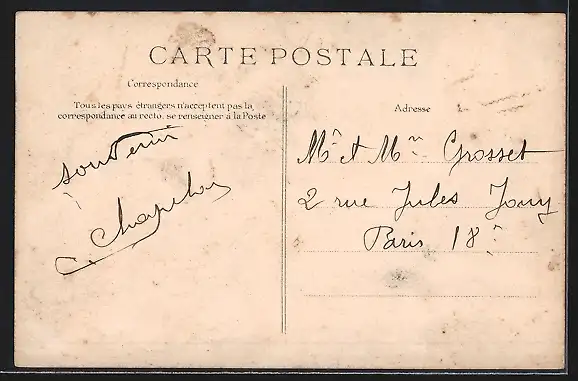 CARTE POSTALE
Correspondance
Tous les pays étrangers n'acceptent pas la
correspondance au recto, se renseigner à la Poste
Adresse
souvenir
Mr et Mme Grosset
2 rue Jules Jouy
Paris 18e